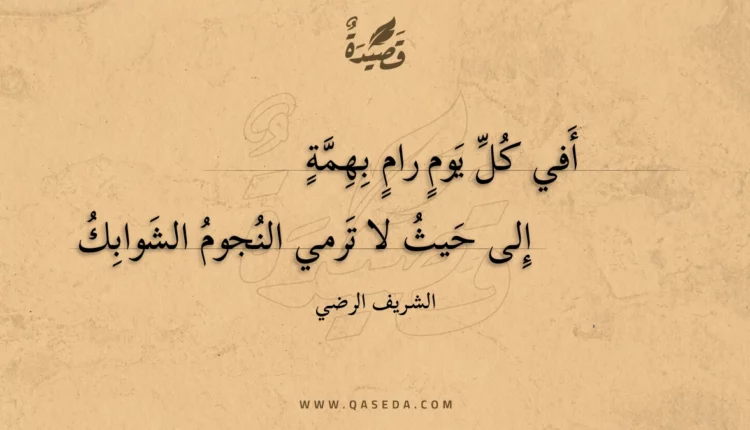 قَصِيْدَةٌ
أَفي كُلِّ يَومٍ رامٍ بِهِمَّةٍ
إِلى حَيثُ لا تَرمي النُجومُ الشَوابِكُ
الشريف الرضي
WWW.QASEDA.COM